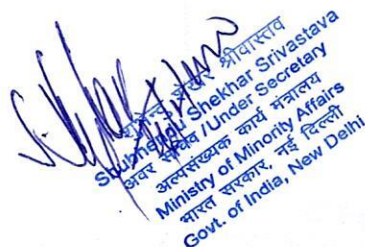 शेखर श्रीवास्तव
Shekhar Srivastava
अवर सचिव/Under Secretary
अल्पसंख्यक कार्य मंत्रालय
Ministry of Minority Affairs
भारत सरकार, नई दिल्ली
Govt. of India, New Delhi